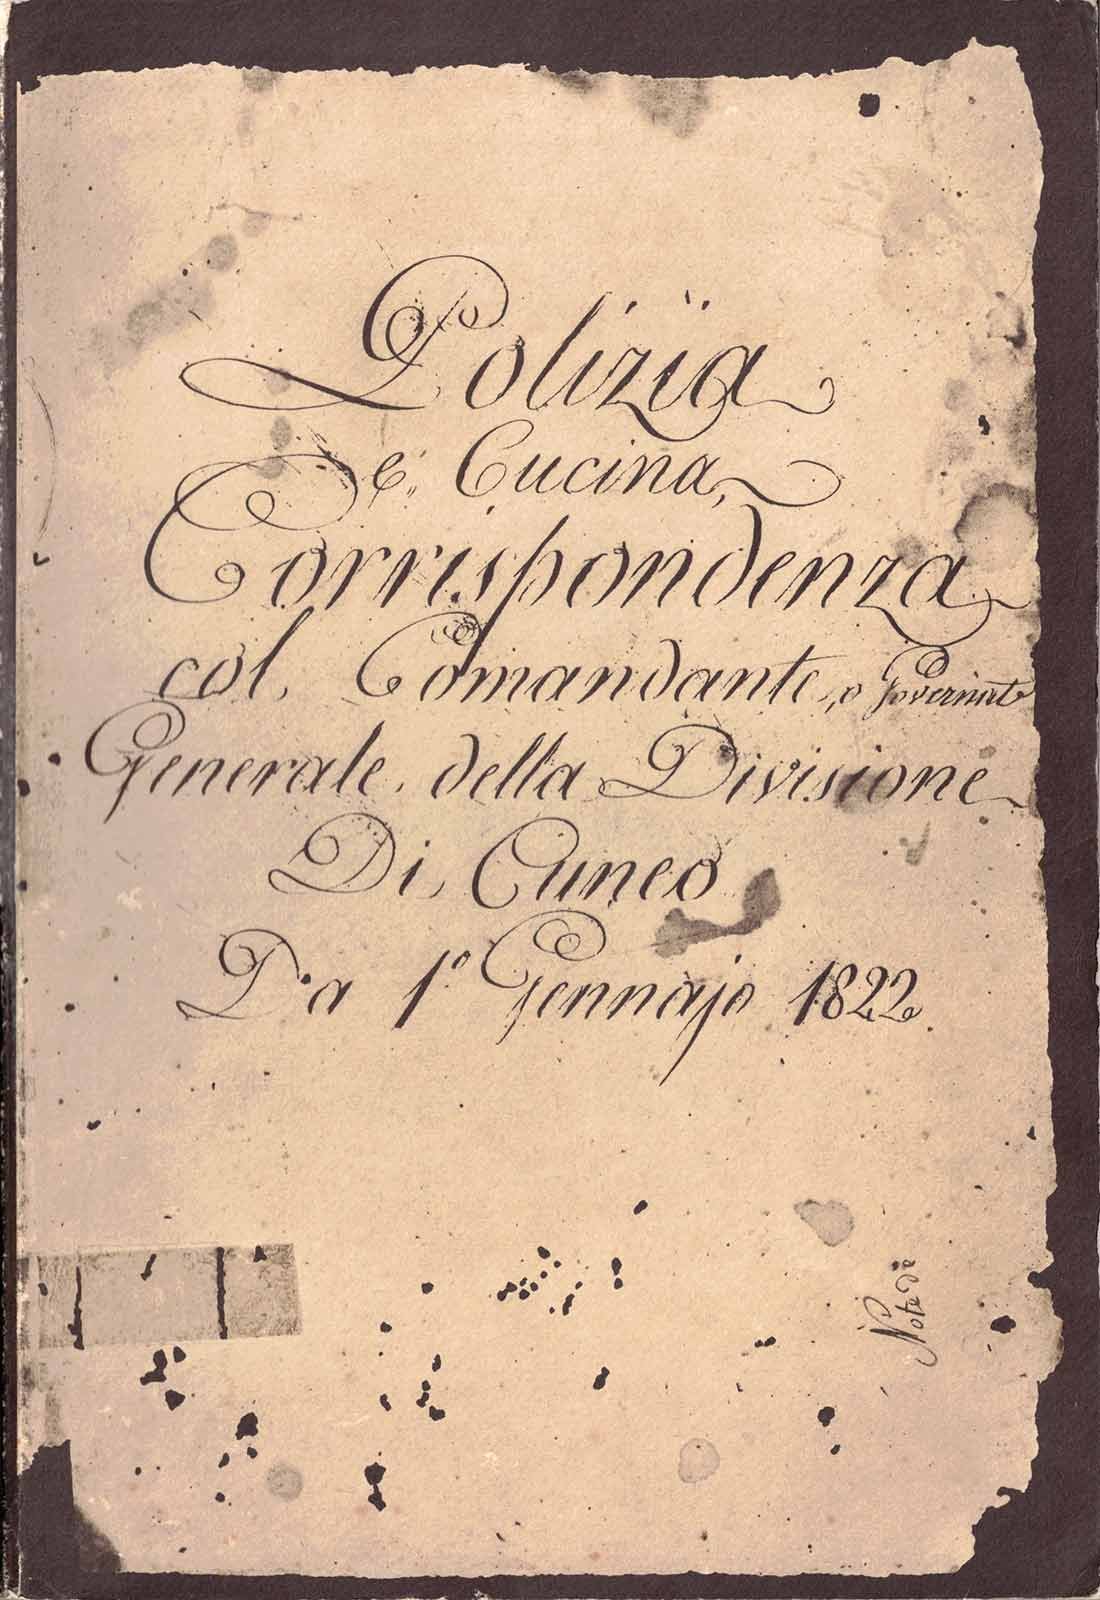 Polizïa
e, Cucina,
Corrispondenza
col, Comandante, o Governat
Generale, della Divisione
Di, Cuneo
Da 1° Gennajo 1822
Note Di